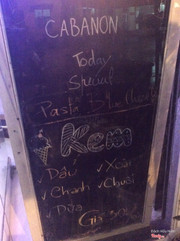 CABANON
Today
Special
Pasta
Kem
Dâu
Xoài
Chanh
Chuối
Dừa